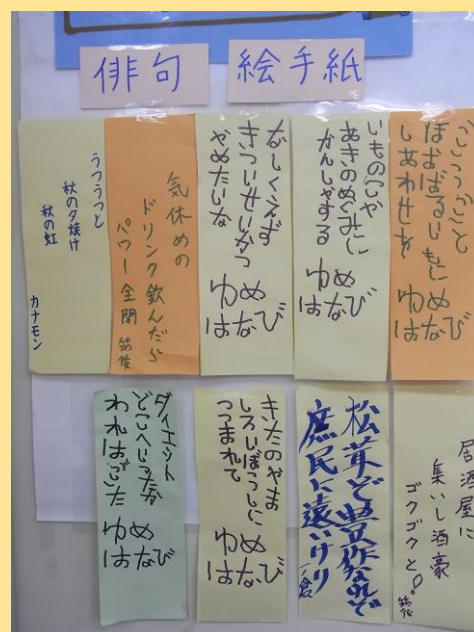 俳句 絵手紙
ほおばるいもに
しあわせを
ゆめ
はなび
いものつや
あきのめぐみに
かんしゃする
ゆめ
はなび
なしくえず
きついせいかつ
やめたいな
ゆめ
はなび
気休めの
ドリンク飲んだら
パワー全開 筑後
うつうつと
秋の夕焼け
秋の虹
カナモン
居酒屋に
集いし酒豪
ゴクゴクと! 筑後
松茸ど豊作なれど
庶民に遠いけり
きたのやま
しろいぼうしに
つつまれて
ゆめ
はなび
ダイエット
どこへいったか
われは
ゆめ
はなび